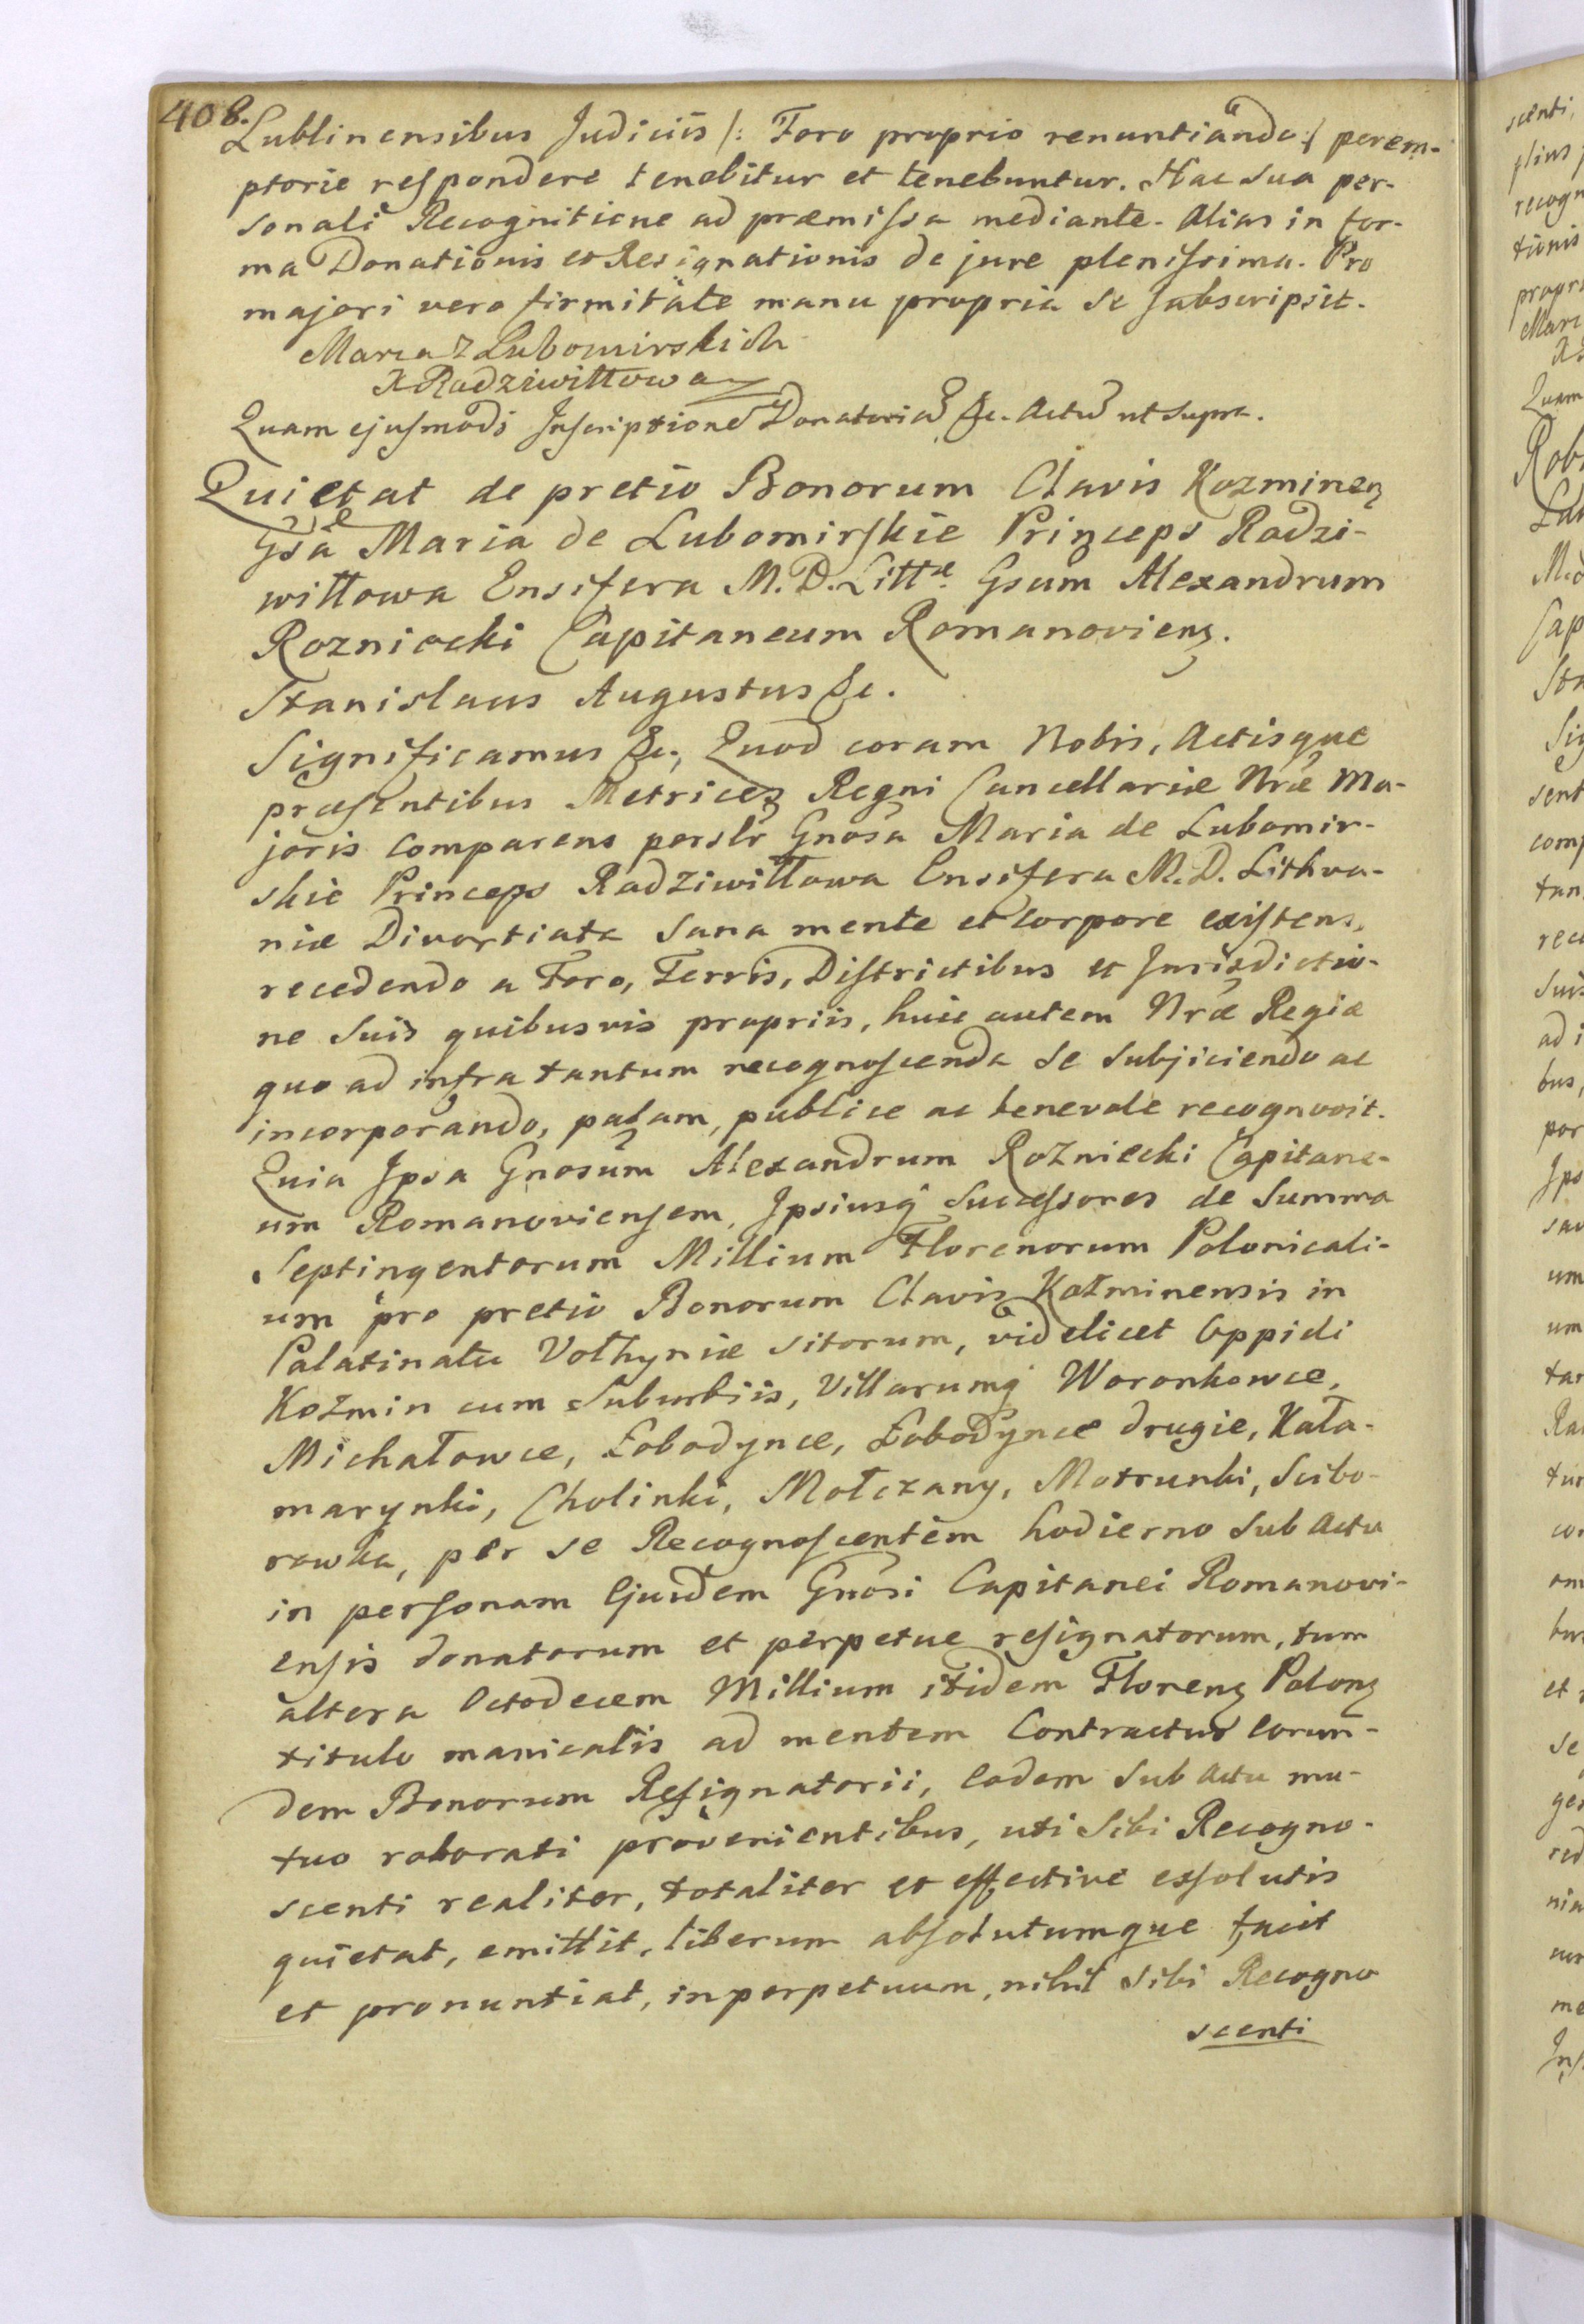 408.
Lublinensibus Judiciis /: Foro proprio renuntiando :/ perem-
ptorie respondere tenebitur et tenebuntur. Hac sua per-
sonali Recognitione ad præmissa mediante. Alias in for-
ma Donationis et Resignationis de jure plenissima. Pro
majori vero firmitate manu propria se subscripsit.
Maria z Lubomirskich
X Radziwiłłowa
Quam ejusmodi Inscriptione Donatoria &c. Actu ut supra.
Quietat de pretio Bonorum Clavis Kozminen
Gsa Maria de Lubomirskie Princeps Radzi-
wiłłowa Ensifera M. D. Littæ Gsum Alexandrum
Rozniecki Capitaneum Romanovien.
Stanislaus Augustus &c.
Significamus &c., Quod coram Nobis, Actisque
præsentibus Metrices Regni Cancellariæ Nræ Ma-
joris comparens perslr Gnosa Maria de Lubomir-
skie Princeps Radziwiłłowa Ensifera M. D. Lithva-
niæ Divortiata sana mente et corpore existens,
recedendo a Foro, Terris, Districtibus et Jurisdictio-
ne suis quibusvis propriis, huic autem Nræ Regiæ
quo ad infra tantum recognoscenda se subjiciendo ac
incorporando, palam, publice ac benevole recognovit.
Quia Ipsa Gnosum Alexandrum Rożniecki Capitane-
um Romanoviensem, Ipsiusq Successores de Summa
Septingentorum Millium Florenorum Polonicali-
um pro pretio Bonorum Clavis Koźminensis in
Palatinatu Volhyniæ sitorum, videlicet Oppidi
Koźmin cum Suburbiis, Villarumq Woronkowce,
Michałowce, Łobodynce, Łobodynce drugie, Kała-
marynki, Cholinki, Mołczany, Motrunki, Scibo-
rowka, per se Recognoscentem hodierno sub actu
in personam Ejusdem Gnosi Capitanei Romanovi-
ensis donatorum et perpetue resignatorum, tum
altera Octodecem Millium itidem Floren Polon
titulo manicalis ad mentem Contractus eorun-
dem Bonorum Resignatorii, eodem sub actu mu-
tuo roborati provenientibus, uti sibi Recogno-
scenti realiter, totaliter et effective exsolutis
quietat, emittit, liberum absolutumque facit
et pronuntiat, in perpetuum, nihil sibi Recogno
scenti